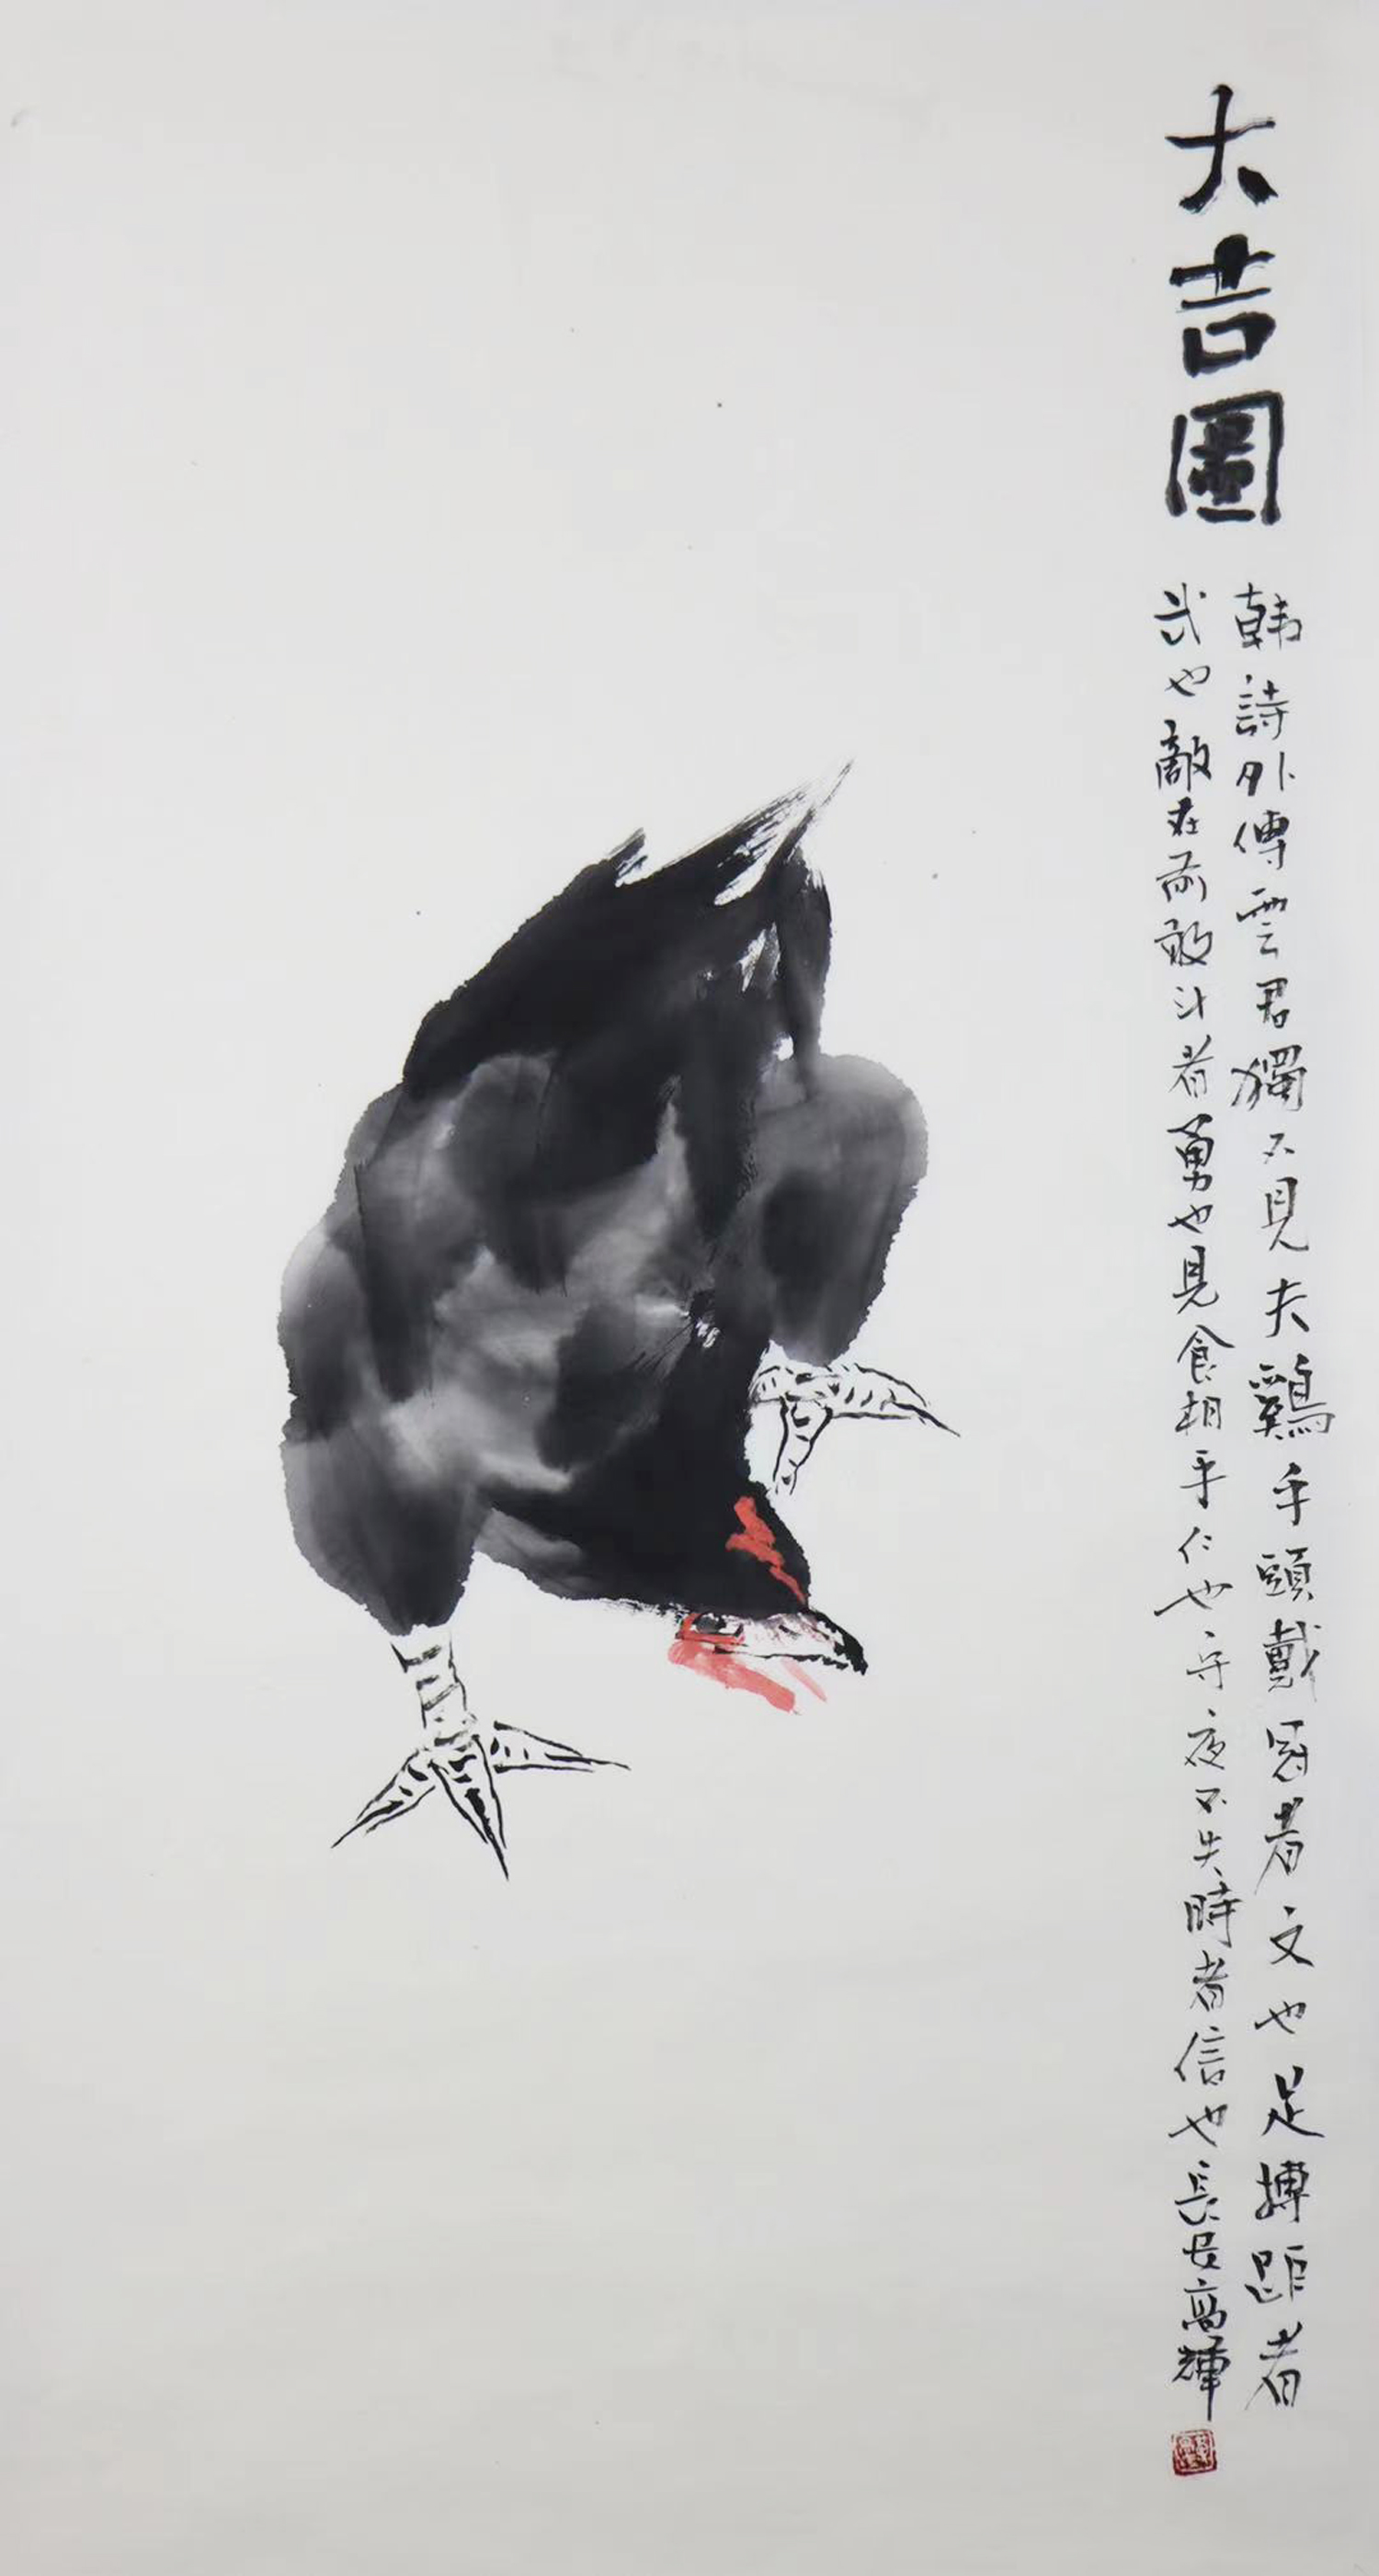 大吉圖
韩詩外傳雲君獨不見夫鷄乎頭戴冠者文也足搏距者
武也敵在前敢斗者勇也見食相乎仁也守夜不失時者信也長安高輝